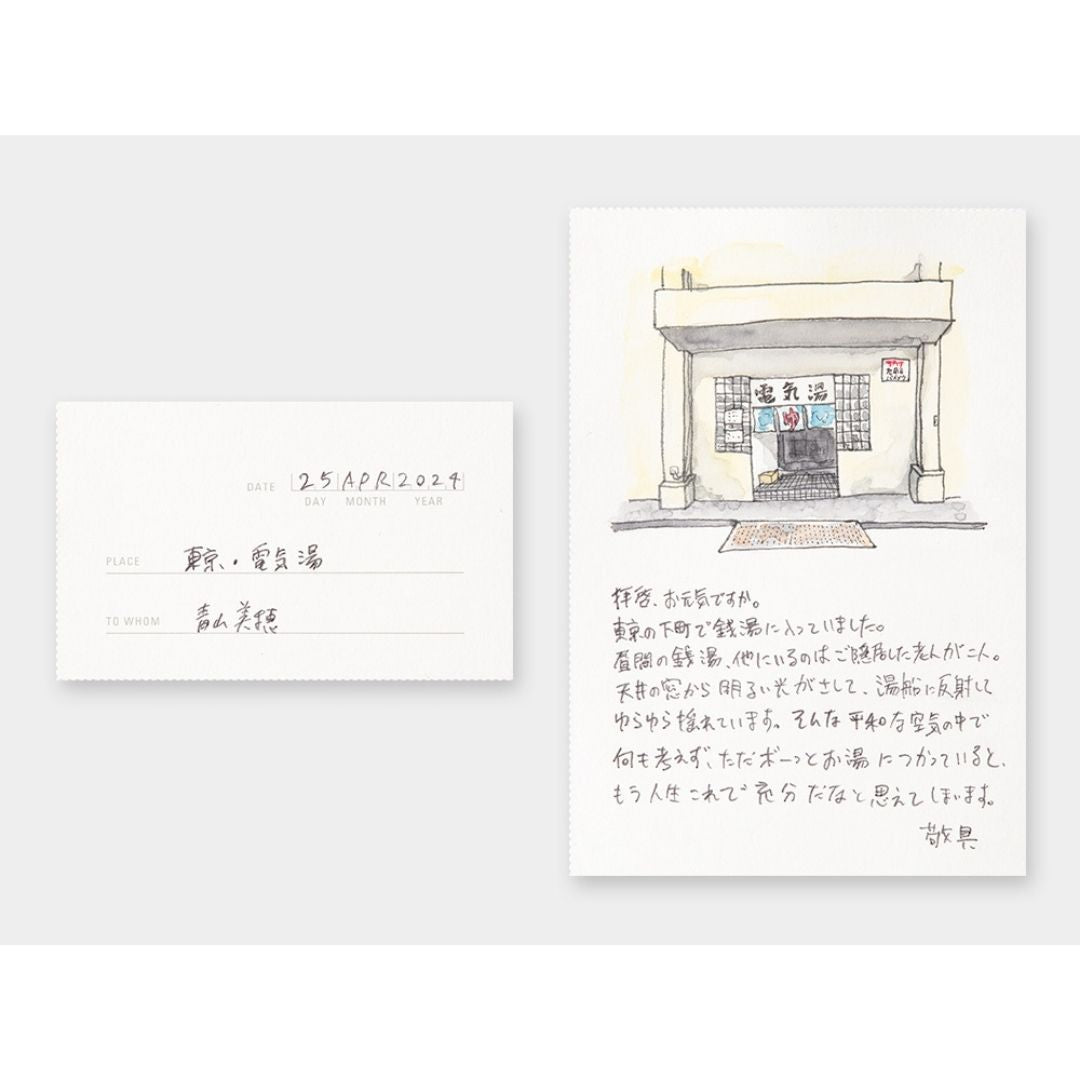 DATE 25 APR 2024
DAY MONTH YEAR
PLACE 東京・電気湯
TO WHOM 青山美穂
電気湯
ゆ
拝啓、お元気ですか。
東京の下町で銭湯に入っていました。
昼間の銭湯、他にいるのはご隠居した老人が二人。
天井の窓から明るい光がさして、湯船に反射して
ゆらゆら揺れています。そんな平和な空気の中で
何も考えず、ただボーっとお湯につかっていると、
もう人生これで充分だなと思えてしまいます。
敬具